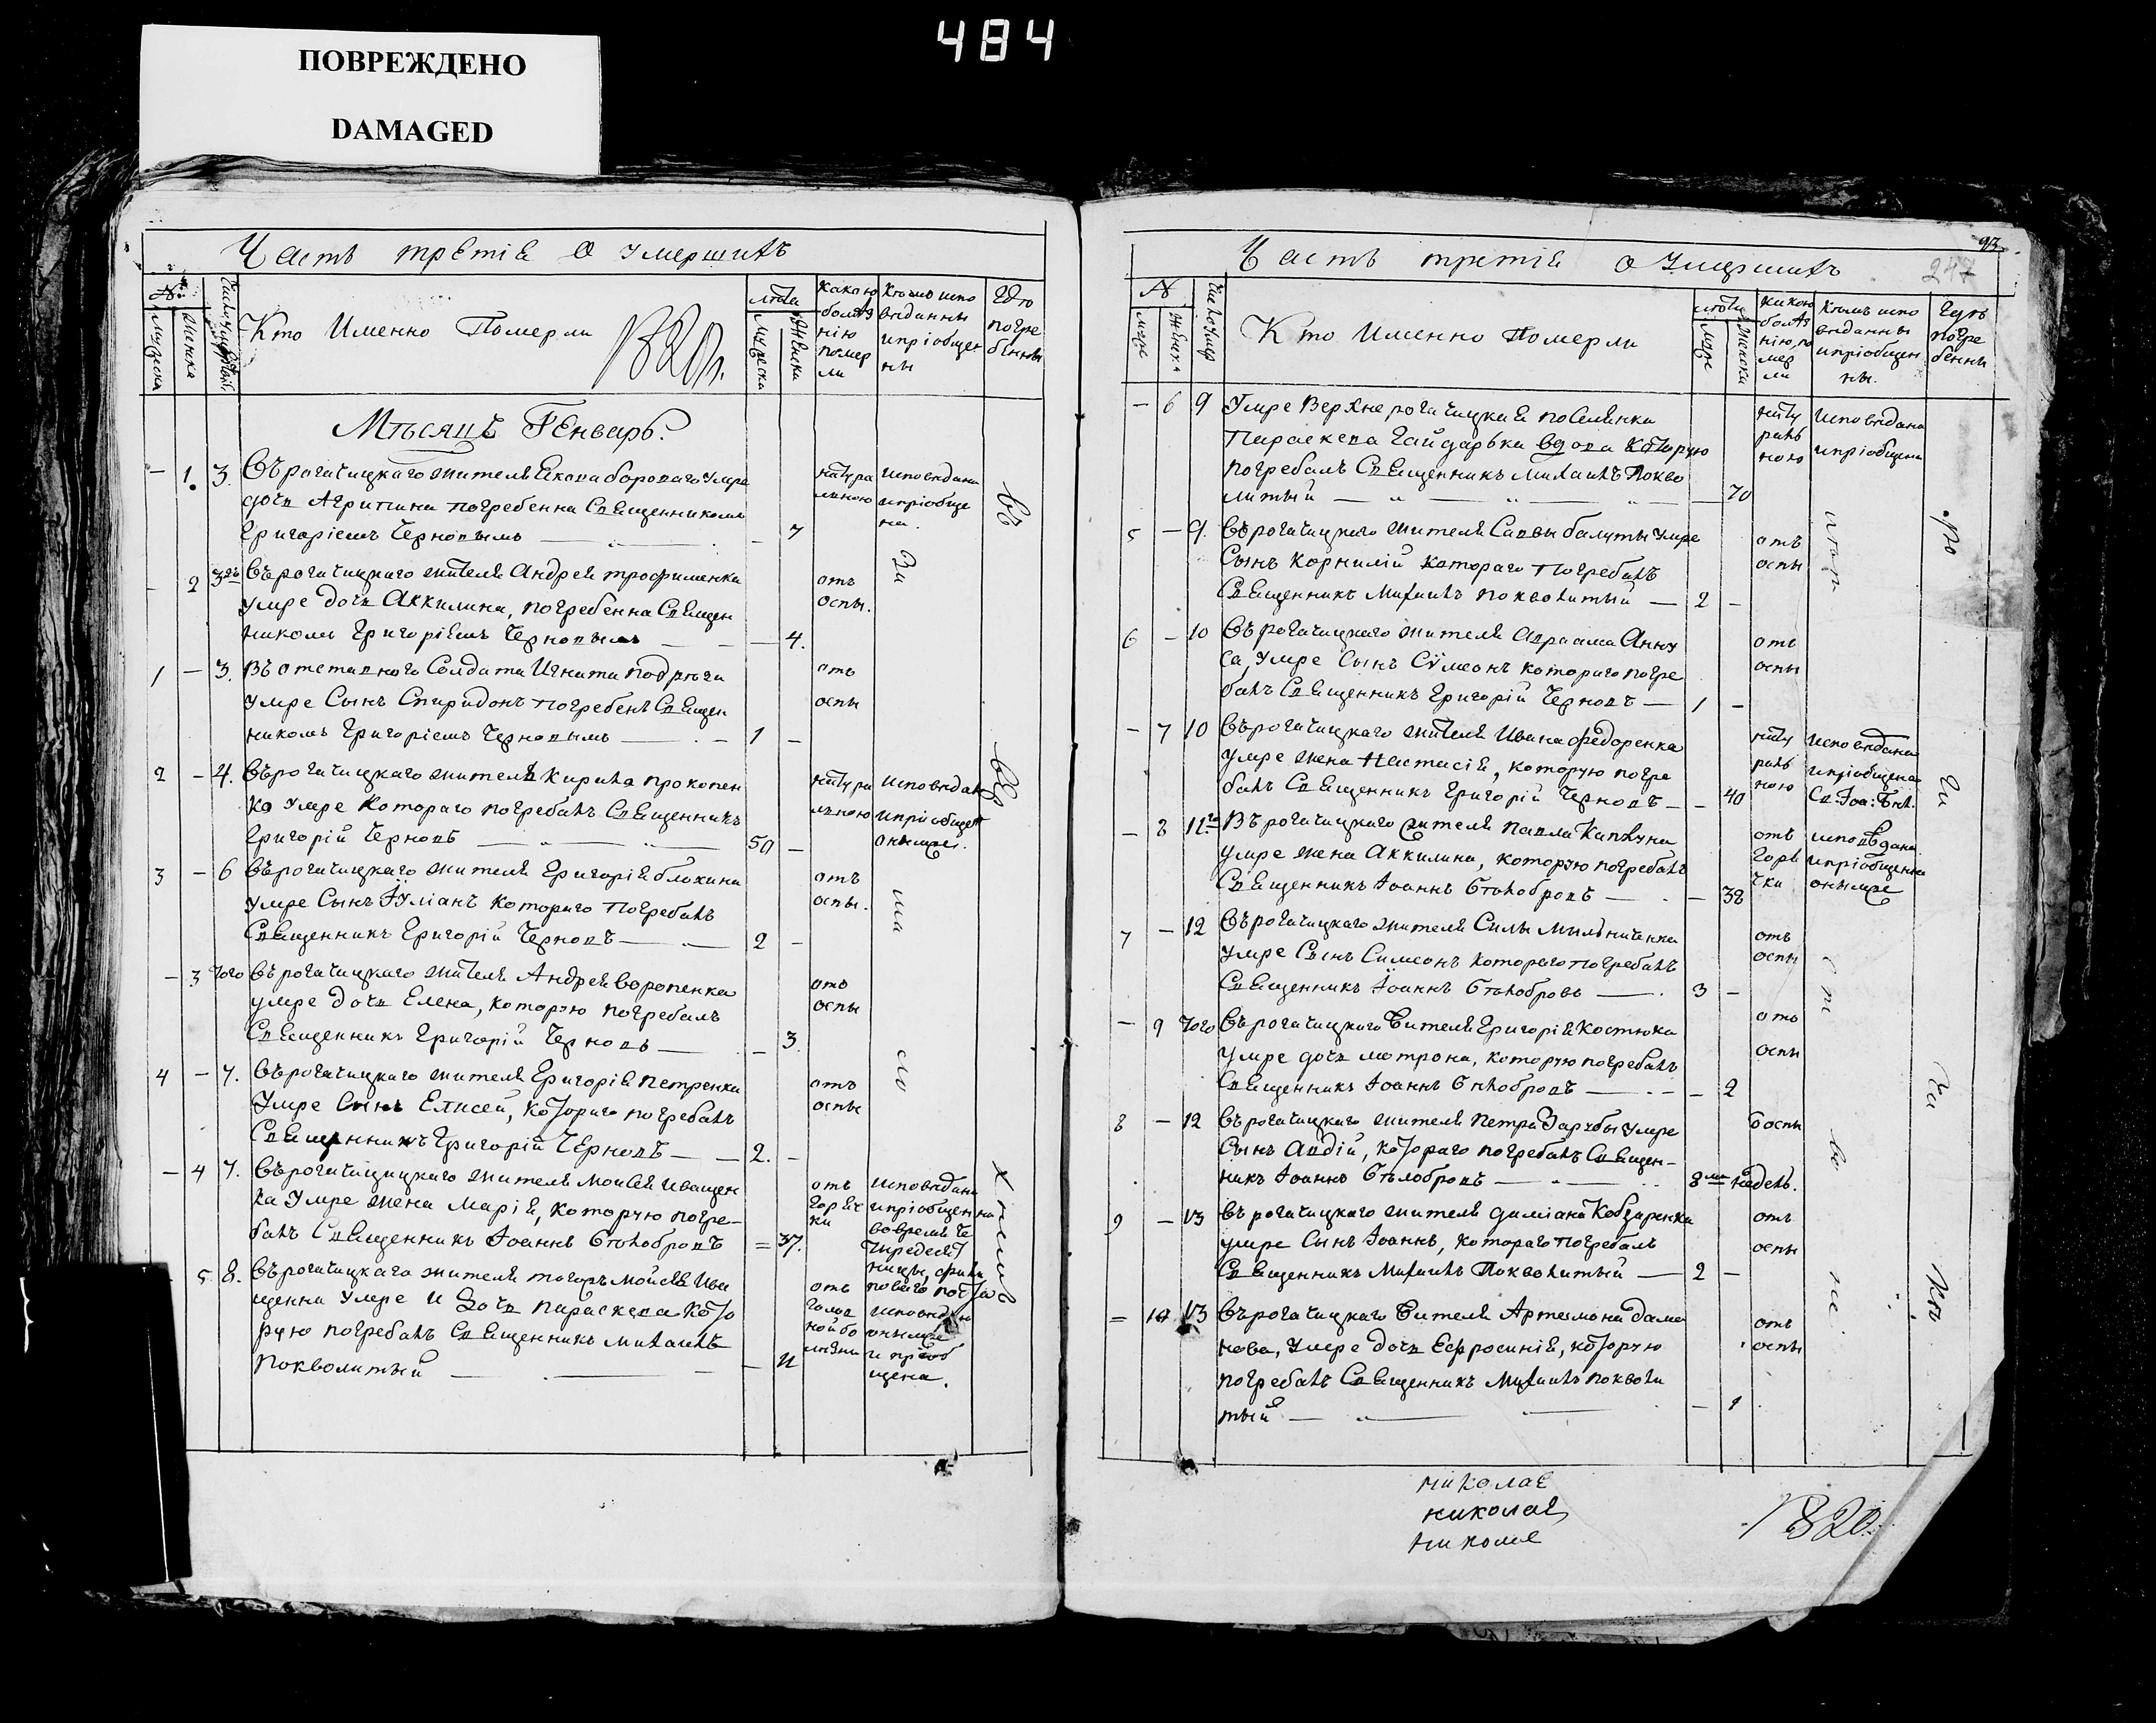 ПОВРЕЖДЕНО
DAMAGED
484
Часть третіе О умершихъ
№
Мужеска
Женска
Кто Именно Померли
лѣта
Мужеска
Женски
какою болѣзнію померли
Кѣмъ исповѣданны ипріобщенны
Гдѣ погребенны
Мѣсяцъ Генварь.
— 1. 3. Въ рогачицкаго жителя умре
дочь Агрипина погребенна Священникомъ
Григоріемъ Черновымъ — 7
натуральною
исповѣдана ипріобщена.
— 2 3го Въ рогачицкаго жителя Андрея трофименка
умре дочь Аккилина, погребенна Священ
никомъ Григоріемъ Черновымъ — 4.
отъ оспы.
1 — 3. Въ отставного Солдата Игната
умре Сынъ Спиридонъ погребенъ Священ
никомъ Григоріемъ Черновымъ — 1 —
отъ оспы
2 — 4. Въ рогачицкаго жителя Кирила прокопен
ко умре котораго погребалъ Священникъ
Григорій Черновъ — 50 —
натуральною
исповѣдан ипріобщен онымже.
3 — 6 Въ рогачицкаго жителя Григорія блохина
умре Сынъ Іуліанъ котораго погребалъ
Священникъ Григорій Черновъ — 2 —
отъ оспы.
— 3 того Въ рогачицкаго жителя Андрея воропенка
умре дочь Елена, которую погребалъ
Священникъ Григорій Черновъ — 3
отъ оспы
4 — 7. Въ рогачицкаго жителя Григорія петренка
Умре Сынъ Елисей, котораго погребалъ
Священникъ Григорій Черновъ — 2. —
отъ оспы
— 4 7. Въ рогачицкаго жителя Моисея иващен
ка умре жена Марія, которую погре-
балъ Священникъ Іоаннъ Бѣлобровъ = 37.
отъ горячки
исповѣдана ипріобщенна вовремя
5 8. Въ рогачицкаго жителя тогожъ мойсея Ива
щенка умре и дочь параскева кото
рую погребалъ Священникъ михаилъ
поквалитый — 11
отъ головной болѣзни
исповѣдана онымже и пріобщена.
93
247
Часть третія О умершихъ
№
муже
женск
Кто Именно Померли
лѣта
муже
женски
какою болѣзнію, померли
Кѣмъ исповѣданны ипріобщенны.
Гдѣ погребенны
— 6 9 Умре Верхнерогачицкая поселянка
Параскева Гайдарька вдова которую
погребалъ Священникъ михаилъ Покво
литый — 70
натуральною
исповѣдана ипріобщена
5 — 9. Въ рогачицкаго жителя Саввы балуты умре
Сынъ корнилій котораго погребалъ
Священникъ Михаилъ поквалитый — 2 —
отъ оспы
6 — 10 Въ рогачицкаго жителя Авраама Анну
са, умре Сынъ Сѵмеонъ котораго погре
балъ Священникъ Григорій Черновъ — 1 —
отъ оспы
— 7 10 Въ рогачицкаго жителя Ивана федоренка
умре жена Настасія, которую погре
балъ Священникъ Григорій Черновъ — 40
натуральною
исповѣдана ипріобщена Св: Іоа: Бѣл.
— 8 11го Въ рогачицкаго жителя павла Каплуна
умре жена Аккилина, которую погребалъ
Священникъ Іоаннъ Бѣлобровъ — 38
отъ горячки
исповѣдана ипріобщенна онымже
7 — 12 Въ рогачицкаго жителя Силы Мильниченка
умре Сынъ Симеонъ котораго погребалъ
Священникъ Іоаннъ Бѣлобровъ — 3 —
отъ оспы
— 9 того Въ рогачицкаго жителя Григорія костюка
умре дочь мотрона, которую погребалъ
Священникъ Іоаннъ Бѣлобровъ — 2
отъ оспы
8 — 12 Въ рогачицкаго жителя петра Зарубы умре
Сынъ Авдій, котораго погребалъ Священ-
никъ Іоаннъ Бѣлобровъ — 8ми недель.
оспы
9 — 13 Въ рогачицкаго жителя даміана Кобзаренка
умре Сынъ Іоаннъ, котораго погребалъ
Священникъ Михаилъ Поквалитый — 2 —
отъ оспы
= 10 13 Въ рогачицкаго жителя Артемона дама
нова, умре дочь Ефросинія, которую
погребалъ Священникъ Михаилъ поквали
тый — 1
отъ оспы
николае
николае
николе
1820